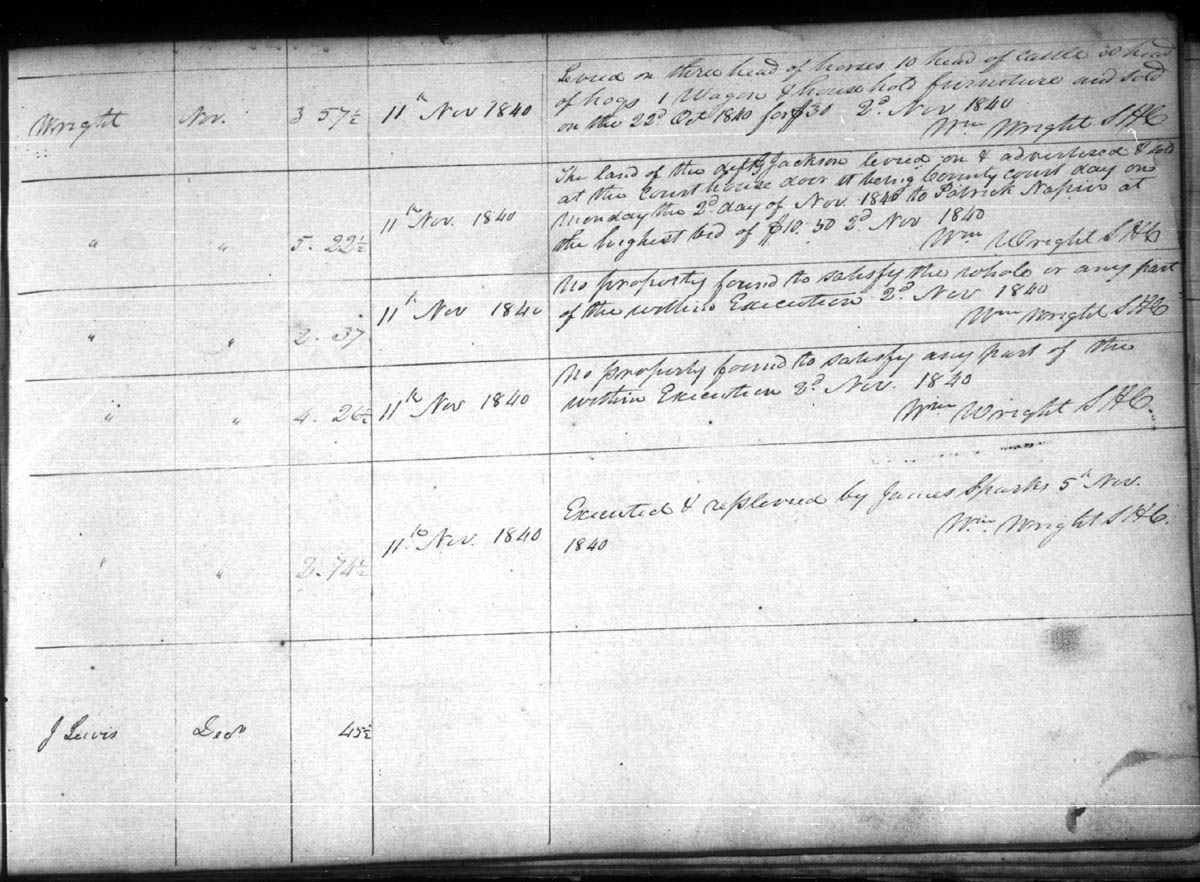 Levied on three head of horses 10 head of Cattle 30 head
of hogs 1 Wagon & household furniture and sold
Wright Nov. 3 57½ 11th Nov 1840 on the 22d Oct 1840 for $30 2d Nov 1840
Wm Wright SHC
The land of the deft Jackson levied on & advertized & sold
at the Courthouse door it being County court day on
" " 5. 22½ 11th Nov. 1840 Monday the 2d day of Nov. 1840 to Patrick Napier at
the highest bid of $10.50 2d Nov 1840
Wm Wright SHC
No property found to satisfy the whole or any part
" " 2. 37 11th Nov 1840 of the within Execution 2d Nov 1840
Wm Wright SHC
No property found to satisfy any part of the
" " 4. 26½ 11th Nov 1840 within Execution 2d Nov. 1840
Wm Wright SHC.
Executed & replevied by James Sparks 5th Nov.
" " 2. 74½ 11th Nov. 1840 1840 Wm Wright SHC.
J Lewis Decr 45½